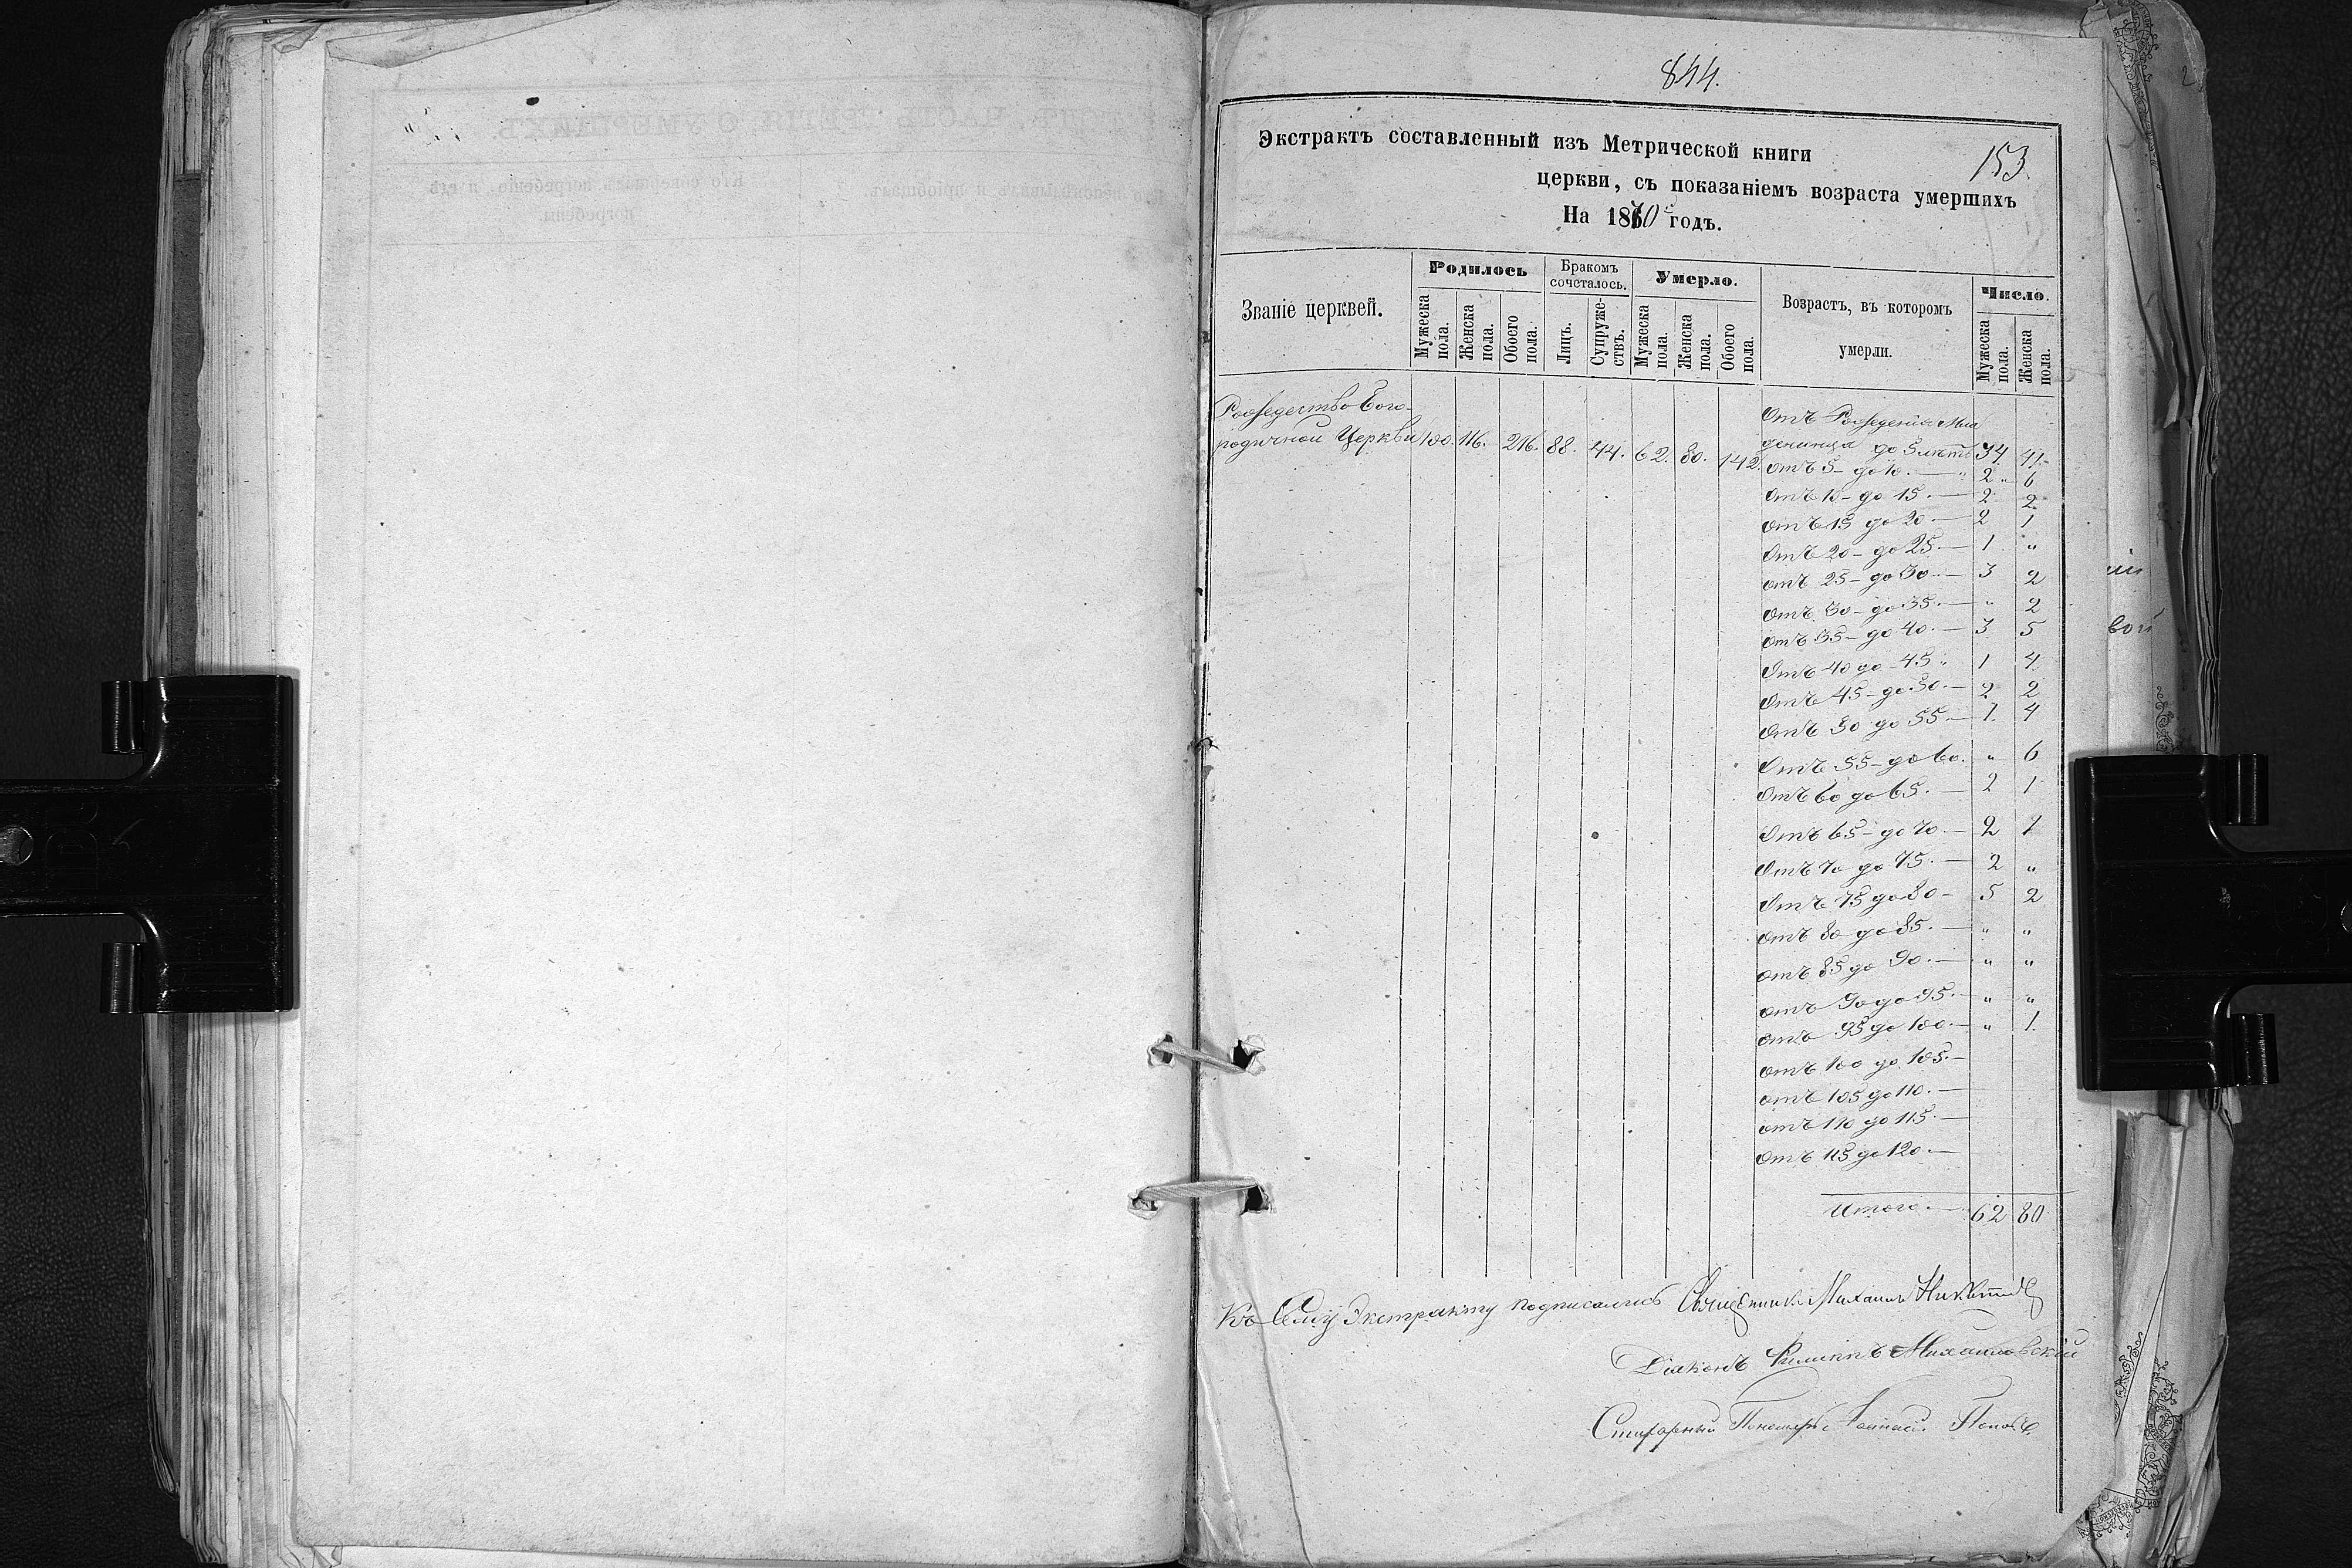 844.
153.
Экстрактъ составленный изъ Метрической книги
церкви, съ показаніемъ возраста умершихъ
На 1870 годъ.
Званіе церквей.
Родилось
Бракомъ сочеталось.
Умерло.
Возрастъ, въ которомъ умерли.
Число.
Мужеска пола.
Женска пола.
Обоего пола.
Лицъ.
Супружествъ.
Мужеска пола.
Женска пола.
Обоего пола.
Мужеска пола.
Женска пола.
Рождество Бого-
родичной Церкви 100. 116. 216. 88. 44. 62. 80. 142.
Отъ Рожденія Мла
денца до 5 лѣтъ 34 41
отъ 5 – до 10. — 2 6
отъ 10 – до 15. — 2 2
отъ 15 до 20 — 2 1
отъ 20 – до 25. — 1 "
отъ 25 – до 30. — 3 2
отъ 30 – до 35. — " 2
отъ 35 – до 40. — 3 5
отъ 40 до 45 " 1 4
отъ 45 – до 50. — 2 2
отъ 50 до 55 — 1. 4
отъ 55 – до 60. " 6
отъ 60 до 65. — 2 1
отъ 65 – до 70. — 2 1
отъ 70 до 75. — 2 "
отъ 75 до 80 – 5 2
отъ 80 до 85. — " "
отъ 85 до 90. — " "
отъ 90 до 95. — " "
отъ 95 до 100. — " 1.
отъ 100 до 105. –
отъ 105 до 110. —
отъ 110 до 115. —
отъ 115 до 120. —
Итого. — 62 80
Къ Сему Экстракту подписались Священникъ Михаилъ
Діаконъ Филиппъ Михаиловскій
Пономарь Поповъ